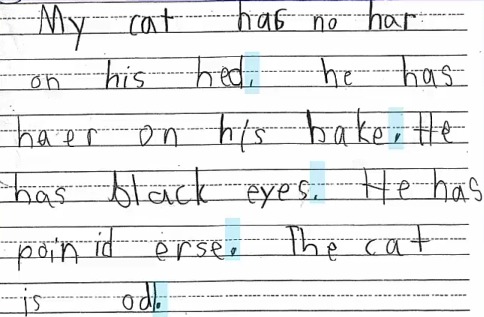 My cat has no har
on his hed. he has
haer on his bake. He
has black eyes. He has
poin id erse. The cat
is od.